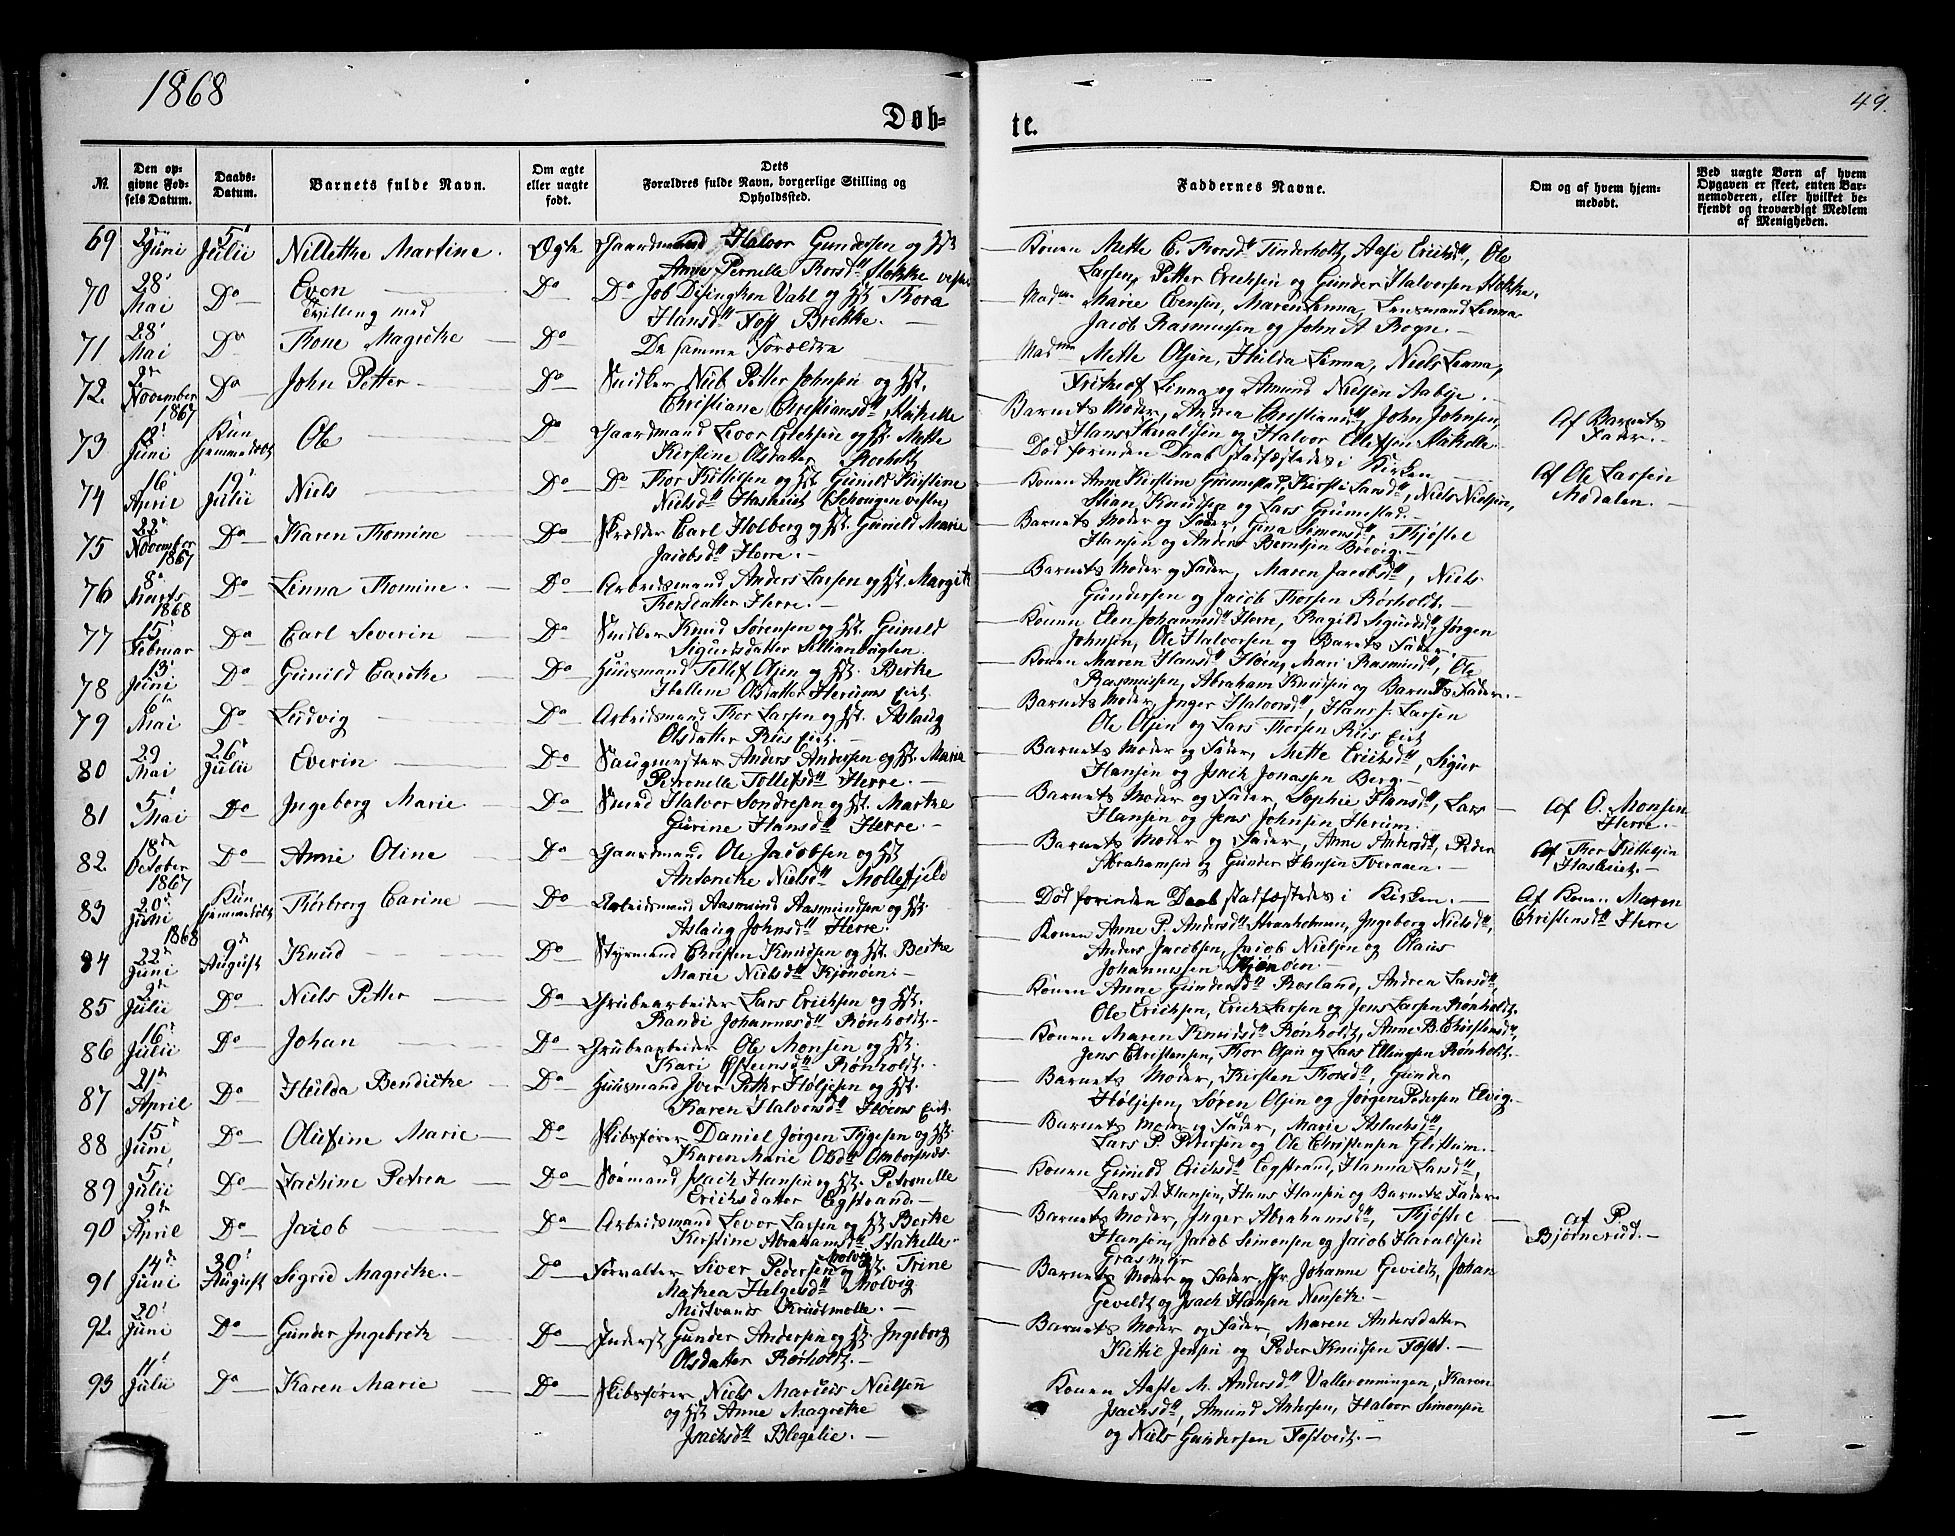 1868
49.
Døb-
te.
№.
Den op-
givne Fød-
sels Datum.
Daabs-
Datum.
Barnets fulde Navn.
Om ægte
eller uægte
født.
Dets
Forældres fulde Navn, borgerlige Stilling og
Opholdssted.
Faddernes Navne.
Om og af hvem hjem-
medøbt.
Ved uægte Børn af hvem
Opgaven er skeet, enten Bar-
nemoderen, eller hvilket be-
kjendt og troværdigt Medlem
af Menigheden.
69 2den Juni 5t Julii Nillethe Martine. Ægte Gaardmand Halvor Gundersen og Hst
Anne Pernelle Thorsdtr Stokke vestre
Konen Mette C. Thorsdtr Tinderholt, Aase Ericksdtr, Ole
Larsen, Petter Ericksen og Gunder Halvorsen Stokke.
70 28t Mai Do Even Do Do Job Disingthon Vahl og Hst Thora
Tvilling med
Hansdtr Foss Brekke.
Madme Marie Evensen, Maren Linna, Lensmand Linna
Jacob Rasmussen og John A Rogn.
71 28t Mai Do Thone Magrethe Do De samme Forældre
Madme Mette Olsen, Hulda Linna, Niels Linna,
Frithjof Linna og Amund Nielsen Aabye.
72. 2den November 1867 Do John Petter Do Snidker Niels Petter Johnsen og Hst.
Christiane Christiansdtr Stathelle
Barnets Moder, Andrea Christiansdtr, John Johnsen,
Hans Haraldsen og Halvor Ellefsen Stathelle
73 Juni Kun hjemmedøbt Ole Do Gaardmand Levor Ericksen og Hst. Mette
Kirstine Olsdatter Rørholt
Død forinden Daab stadfæstedes i Kirken
Af Barnets
Fader.
74 16t April 19t Julii Niels Do Do Thor Kittilsen og Hst. Gunild Kirstine
Nielsdtr Hasleiet vestre
Konen Anne Kirstine Grumstad, Kirsti Larsdtr, Niels Nielsen,
Stian Knudsen og Lars Grumstad.
Af Ole Larsen
Modalen.
75 22t November 1867 Do Karen Thomine Do Skrædder Carl Holberg og Hst. Gunild Marie
Jacobsdtr Herre.
Barnets Moder og Fader, Gina Simonsdtr, Thjøstel
Hansen og Anders Berntsen Brevig.
76 8t Marts 1868 Do Linna Thomine Do Arbeidsmand Anders Larsen og Hst. Margith
Thorsdatter Herre.
Barnets Moder og Fader, Maren Jacobsdtr, Niels
Gundersen og Jacob Thorsen Rørholt.
77 15t Februar Do Carl Severin Do Snidker Knud Sørensen og Hst. Gunild
Sigurdsdatter
Konen Elen Johannesdtr Herre, Ragild Sigurdsdtr, Jørgen
Johnsen, Ole Halvorsen og Barnets Fader.
78 13t Juni Do Gunild Carethe Do Huusmand Tellef Olsen og Hst. Berthe
Hellene Olsdatter Herums Eiet.
Konen Maren Hansdtr Høen, Mari Rasmusdtr, Ole
Rasmussen, Abraham Knudsen og Barnets Fader.
79 6te Mai Do Ludvig Do Arbeidsmand Thor Larsen og Hst. Aslaug
Olsdatter Riis Eiet.
Barnets Moder, Inger Halvorsdtr, Hans J. Larsen
Ole Olsen og Lars Thorsen Riis Eiet
80 29 Mai 26t Julii Everin Do Saugmester Anders Andersen og Hst. Maria
Petronelle Tollefsdtr Herre.
Barnets Moder og Fader, Mette Ericksdtr, Sigur
Hansen og Isach Jonassen Berg.
81 5t Mai Do Ingeborg Marie Do Smed Halvor Sondresen og Hst. Marthe
Gurine Hansdtr Herre.
Barnets Moder og Fader, Sophie Hansdtr, Lars
Hansen og Jens Johnsen Herum.
af O. Monsen
Herre.
82. 18de October 1867 Do Anne Oline Do Gaardmand Ole Jacobsen og Hst
Antonethe Nielsdtr Mollefjeld
Barnets Moder og Fader, Anne Andersdtr, Peder
Abrahamsen og Gunder Hansen Tveraaen.
af Thor Kittelsen
Hasleiet.
83 20t Juni 1868 Kun hjemmedøbt Thorborg Carine Do Arbeidsmand Aasmund Aasmundsen og Hst.
Aslaug Johnsdtr Herre.
Død forinden Daab stadfæstedes i Kirken.
Af Konen Maren
Christensdtr Herre
84 22t Juni 9de August Knud Do Styrmand Christen Knudsen og Hst. Berthe
Marie Nielsdtr Kjønøen.
Konen Anne P. Andersdtr Stranholmen, Ingeborg Nielsdtr,
Anders Jacobsen, Jacob Nielsen og Olaus
Johannessen Kjønøen.
85 2de Julii Do Niels Petter Do Grubearbeider Lars Ericksen og Hst.
Randi Johannesdtr Rønholt.
Konen Anne Gundersdtr Rosland, Andrea Larsdtr,
Ole Ericksen, Erick Larsen og Jens Larsen Rønholt.
86 16t Julii Do Johan Do Grubearbeider Ole Monsen og Hst.
Kari Østensdtr Rønholt.
Konen Maren Knudsdtr Rønholt, Anne B. Christensdtr,
Jens Christensen, Thor Olsen og Lars Ellingsen Rønholt.
87 21de April Do Hulda Bendicthe Do Huusmand Iver Petter Høljesen og Hst.
Karen Halvorsdtr Høens Eiet.
Barnets Moder, Kirsten Thorsdtr, Gunder
Høljesen, Søren Olsen og Jørgen Pedersen Elvig.
88 15t Juni Do Olufine Marie Do Skibsfører Daniel Jørgen Tygesen og Hst.
Karen Marie Olsdtr Ombordsnes.
Barnets Moder og Fader, Marie Aslachsdtr,
Lars P. Pedersen og Ole Christensen Glittum.
89 5t Julii Do Zachine Petrea Do Sømand Isach Hansen og Hst. Petronelle
Ericksdatter Eegstrand.
Konen Gunild Ericksdtr Eegstrand, Hanna Larsdtr,
Lars A. Hansen, Hans Hansen og Barnets Fader.
90 2de April Do Jacob Do Arbeidsmand Levor Larsen og Hst Berthe
Kirstine Abrahamsdtr Stathelle.
Barnets Moder, Inger Abrahamsdtr, Thjøstel
Hansen, Jacob Simonsen og Jacob Haraldsen
Grasmyr
af P.
Bjørnerud.
91 14de Juni 30t August Sigrid Magrethe. Do Forvalter Siver Pedersen Molvig og Hst. Trine
Mathea Helgesdtr Molvig
Midtvands Krudtmølle.
Barnets Moder og Fader, Fr. Johanne Geveldt, Johan
Geveldt og Isach Hansen Neuseth.
92. 20t Juni Do Gunder Ingebreth Do Inderst Gunder Andersen og Hst Ingeborg
Olsdatter Rørholt.
Barnets Moder og Fader, Maren Andersdatter
Kittil Jensen og Peder Knudsen Tosst.
93 11t Julii Do Karen Marie Do Skibsfører Niels Marcus Nielsen
og Hst Anne Magrethe
Isachsdtr Blegelie.
Konen Aaste M. Andersdtr Valleronningen, Karen
Isachsdtr, Amund Andersen, Halvor Simonsen
og Niels Gundersen Tostvedt.